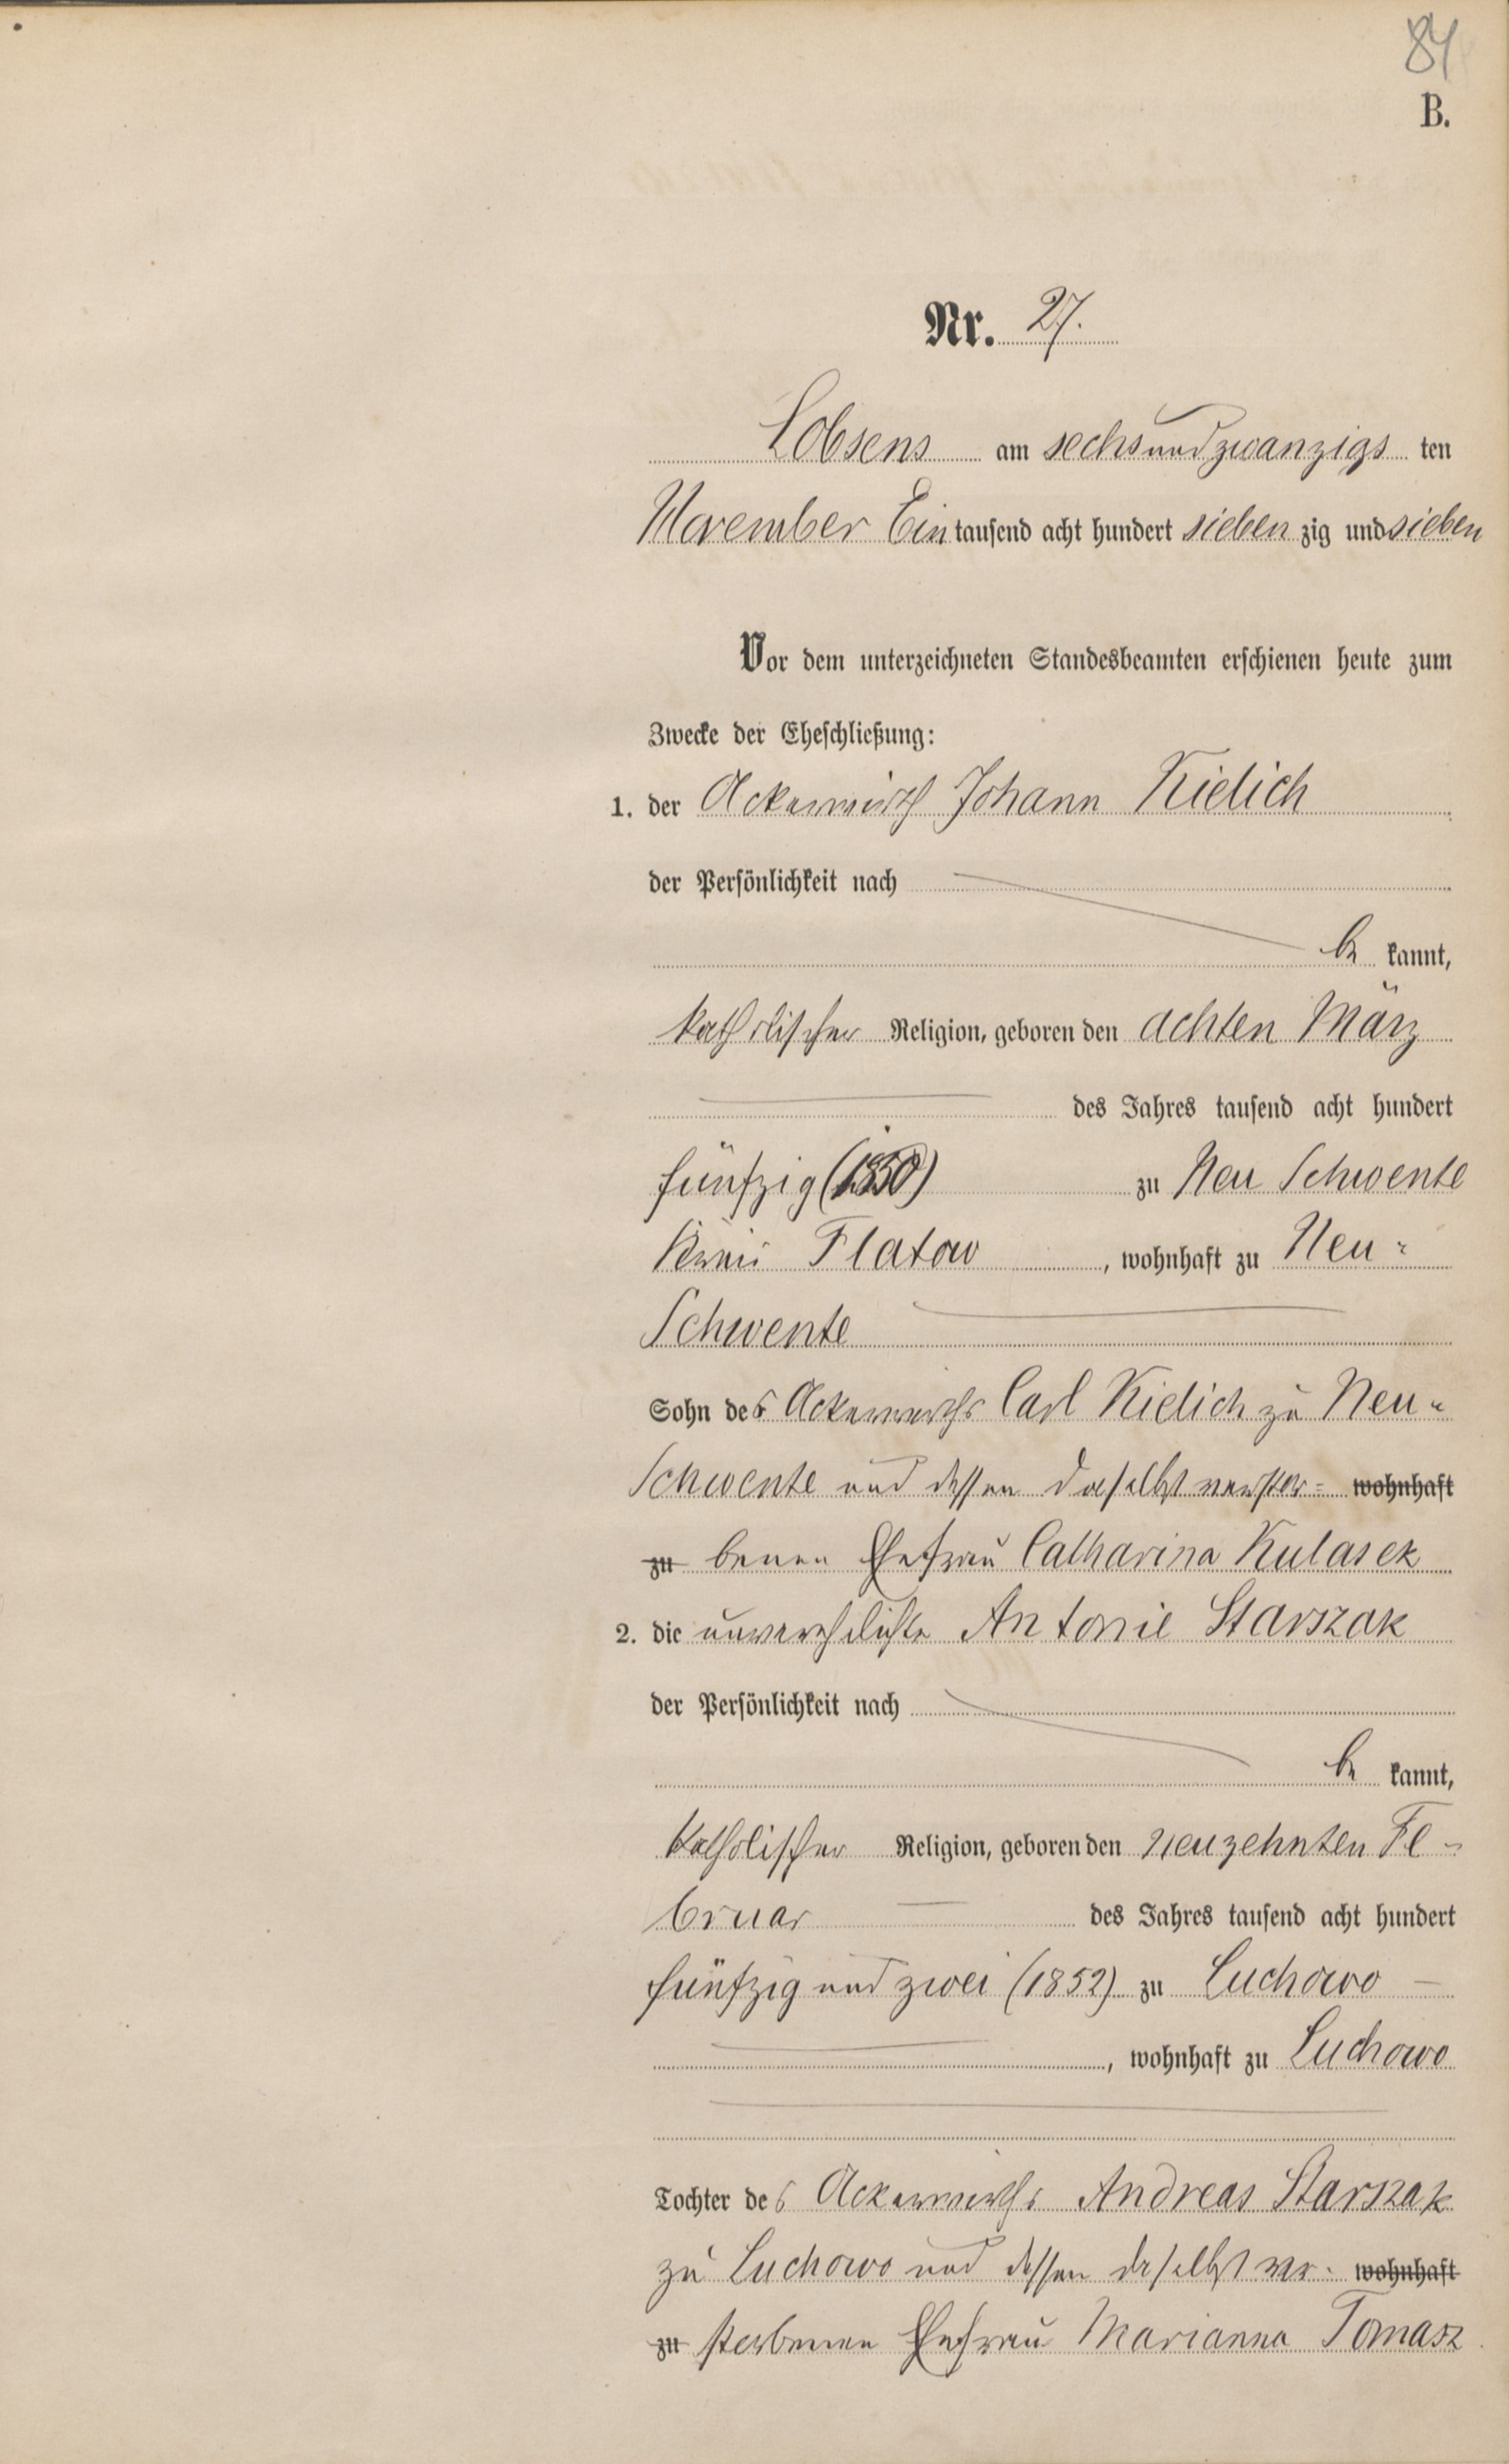 84
B.
Nr. 27.
Lobsens am sechsundzwanzigs ten
November Ein tausend acht hundert sieben zig und sieben
Vor dem unterzeichneten Standesbeamten erschienen heute zum
Zwecke der Eheschließung:
1. der Ackerwirth Johann Kielich
der Persönlichkeit nach
be kannt,
katholischer Religion, geboren den achten März
des Jahres tausend acht hundert
fünfzig (1850) zu Neu Schwente
Kreis Flatow, wohnhaft zu Neu-
Schwente
Sohn des Ackerwirths Carl Kielich zu Neu-
Schwente und dessen daselbst verstor- wohnhaft
zu benen Ehefrau Catharina Kulasek
2. die unverehelichte Antonie Starszak
der Persönlichkeit nach
be kannt,
katholischer Religion, geboren den neuzehnten Fe-
bruar des Jahres tausend acht hundert
fünfzig und zwei (1852) zu Luchowo
, wohnhaft zu Luchowo
Tochter des Ackerwirths Andreas Starszak
zu Luchowo und dessen daselbst ver- wohnhaft
zu storbenen Ehefrau Marianna Tomasz